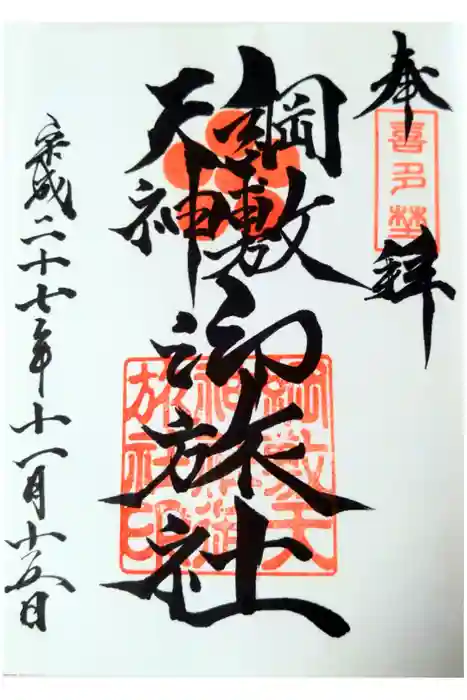 奉拝
喜多埜
綱敷
天神
御旅社
綱敷天
神御
旅社印
平成二十七年十一月十五日